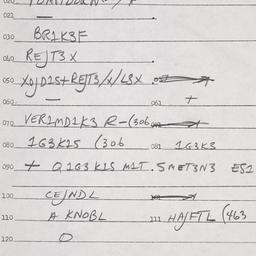 021 —
030 BR1K3F
040 REJT3X
050
060 — 061 +
070 VER1MD1K3 R-(306
080 1G3K1S (306 081 1G3K3
090 + Q1G3 K1S M1T. SMET3N3 ES1
100 CEJNDL
110 A KNOBL 111 HAJFTL (463
120 O